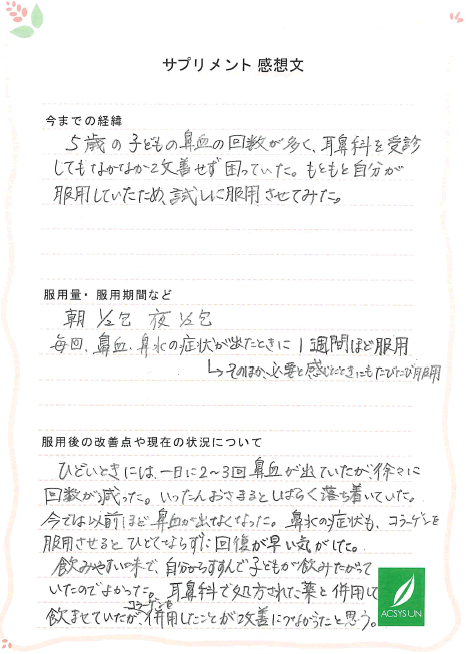 サプリメント 感想文
今までの経緯
5歳の子どもの鼻血の回数が多く、耳鼻科を受診
してもなかなか改善せず困っていた。もともと自分が
服用していたため、試しに服用させてみた。
服用量・服用期間など
朝 1/2包 夜 1/2包
毎回、鼻血、鼻水の症状が出たときに 1週間ほど服用
↳そのほか、必要と感じたときにもたびたび服用
服用後の改善点や現在の状況について
ひどいときには、一日に2~3回鼻血が出ていたが、徐々に
回数が減った。いったんおさまるとしばらく落ち着いていた。
今では以前ほど鼻血が出なくなった。鼻水の症状も、コラーゲンを
服用させるとひどくならずに回復が早い気がした。
飲みやすい味で、自分からすすんで子どもが飲みたがって
いたのでよかった。耳鼻科で処方された薬と併用して
コラーゲンを
飲ませていたが、併用したことが改善につながったと思う。
ACSYS LIN